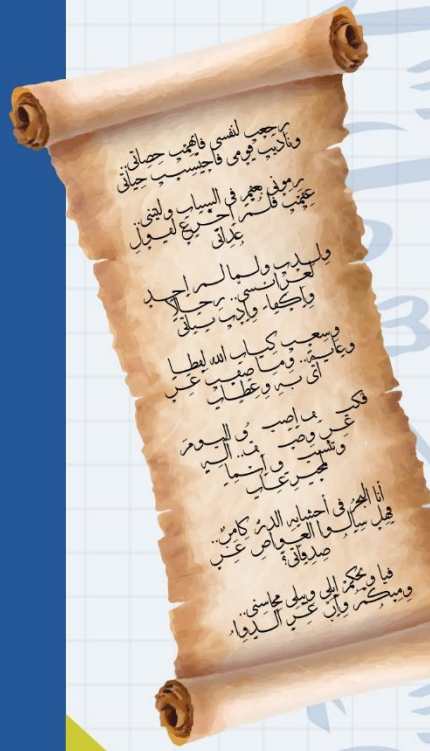 رجعت لنفسي فاتهمت حصاتي..
وناديت قومي فاحتسبت حياتي
رموني بعقم في الشباب وليتني..
عقمت فلم أجزع لقول
عداتي
ولدت ولما لم أجد
لعرائسي.. رجالاً
وأكفاء وأدت بناتي
وسعت كتاب الله لفظا
وغاية.. وما ضقت عن
آي به وعظات
اليوم
عن
أنا البحرُ في أحشائه الدرُّ كامنٌ..
فهل سألوا الغواص عن
صدفاتي؟
فيا ويحكمُ أبلى وتبلى محاسني..
ومنكمْ وإن عز الدواءُ